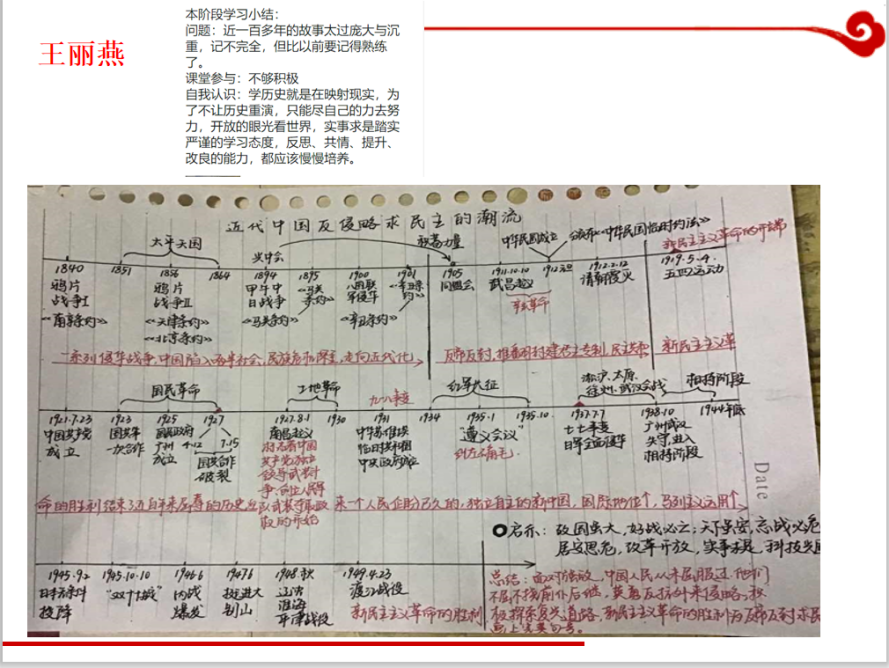 王丽燕
本阶段学习小结：
问题：近一百多年的故事太过庞大与沉
重，记不完全，但比以前要记得熟练
了。
课堂参与：不够积极
自我认识：学历史就是在映射现实，为
了不让历史重演，只能尽自己的力去努
力，开放的眼光看世界，实事求是踏实
严谨的学习态度，反思、共情、提升、
改良的能力，都应该慢慢培养。
近代中国反侵略求民主的潮流
太平天国 兴中会 中华民国成立 颁布《中华民国临时约法》 新民主主义革命的开端
1840 1851 1856 1864 1894 1895 1900 1901 1905 1911.10.10 1912.2.12 1919.5.4
鸦片 鸦片 甲午中 《马关 八国联 《辛丑条 同盟会 武昌起义 清朝覆灭 五四运动
战争I 战争II 日战争 条约》 军侵华 约》 辛亥革命
《南京条约》 《天津条约》 《马关条约》 《辛丑条约》
《北京条约》
一系列侵华战争,中国陷入 社会,民族 走向近代化 反帝反封, 新民主主义革
国民革命 土地革命 九一八事变 红军长征 淞沪、太原、 相持阶段
徐州、武汉会战
1921.7.23 1923 1925 1927 1927.8.1 1930 1931 1934 1935.1 1935.10 1937.7.7 1938.10 1944年底
中国共产党 国共第 国民政府 4.12 7.15 南昌起义 中华苏维埃 "遵义会议" 七七事变 广州武汉
成立 一次合作 广州 国共合作 标志着中国 临时共和国 日军全面侵华 失守,进入
成立 破裂 共产党独立 中央政府成立 相持阶段
领导武装斗
争、创立人民军
队武装夺取政
权的开始
命的胜利结束了 百年来屈辱的历史 来一个人民企盼已久的,独立自主的新中国,国际地位个,马列主义运用个
Date
启示: 敌国虽大,好战必亡;天下虽安,忘战必危
居安思危,改革开放,实事求是,科技
1945.9.2 1945.10.10 1946.6 1947.6 1948秋 1949.4.23
日本 "双十协定" 内战 挺进大 辽沈 渡江战役
投降 爆发 别山 淮海 新民主主义革命的胜利
平津战役
总结: 面对 ,中国人民从未屈服过他们
不屈不挠前仆后继,英勇反抗外来侵略,积
极探索复兴道路,新民主主义革命的胜利为反帝反封求民
画上完美句号。